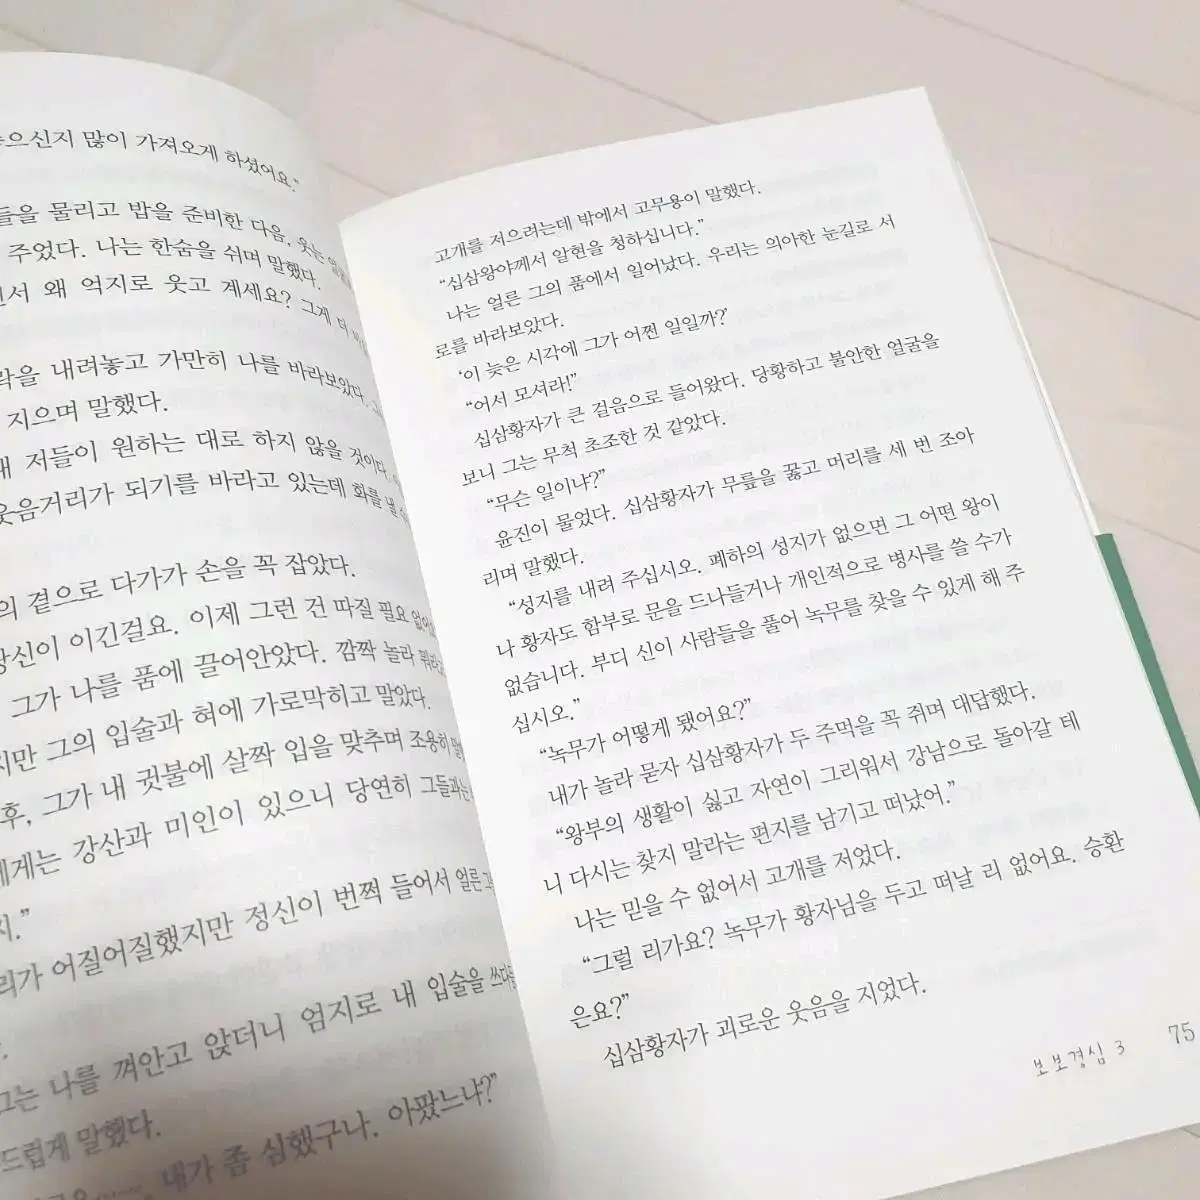 많이 가져오게 하셨어요."
들을 물리고 밥을 준비한 다음, 웃는
주었다. 나는 한숨을 쉬며 말했다.
왜 억지로 웃고 계세요? 그게 더
내려놓고 가만히 나를 바라보았다.
지으며 말했다.
저들이 원하는 대로 하지 않을 것이다.
웃음거리가 되기를 바라고 있는데 화를 낼
곁으로 다가가 손을 꼭 잡았다.
당신이 이긴걸요. 이제 그런 건 따질 필요
그가 나를 품에 끌어안았다. 깜짝 놀라
그의 입술과 혀에 가로막히고 말았다.
후, 그가 내 귓불에 살짝 입을 맞추며 조용히
에게는 강산과 미인이 있으니 당연히 그들과는
지."
어질어질했지만 정신이 번쩍 들어서 얼른
나를 껴안고 앉더니 엄지로 내 입술을
드럽게 말했다.
내가 좀 심했구나. 아팠느냐?"
고개를 저으려는데 밖에서 고무용이 말했다.
"십삼왕야께서 알현을 청하십니다."
나는 얼른 그의 품에서 일어났다. 우리는 의아한 눈길로 서
로를 바라보았다.
'이 늦은 시각에 그가 어쩐 일일까?'
"어서 모셔라!"
십삼황자가 큰 걸음으로 들어왔다. 당황하고 불안한 얼굴을
보니 그는 무척 초조한 것 같았다.
"무슨 일이냐?"
윤진이 물었다. 십삼황자가 무릎을 꿇고 머리를 세 번 조아
리며 말했다.
"성지를 내려 주십시오. 폐하의 성지가 없으면 그 어떤 왕이
나 황자도 함부로 문을 드나들거나 개인적으로 병사를 쓸 수가
없습니다. 부디 신이 사람들을 풀어 녹무를 찾을 수 있게 해 주
십시오."
"녹무가 어떻게 됐어요?"
내가 놀라 묻자 십삼황자가 두 주먹을 꼭 쥐며 대답했다.
"왕부의 생활이 싫고 자연이 그리워서 강남으로 돌아갈 테
니 다시는 찾지 말라는 편지를 남기고 떠났어."
나는 믿을 수 없어서 고개를 저었다.
"그럴 리가요? 녹무가 황자님을 두고 떠날 리 없어요. 승환
은요?"
십삼황자가 괴로운 웃음을 지었다.
보보경심 3 75